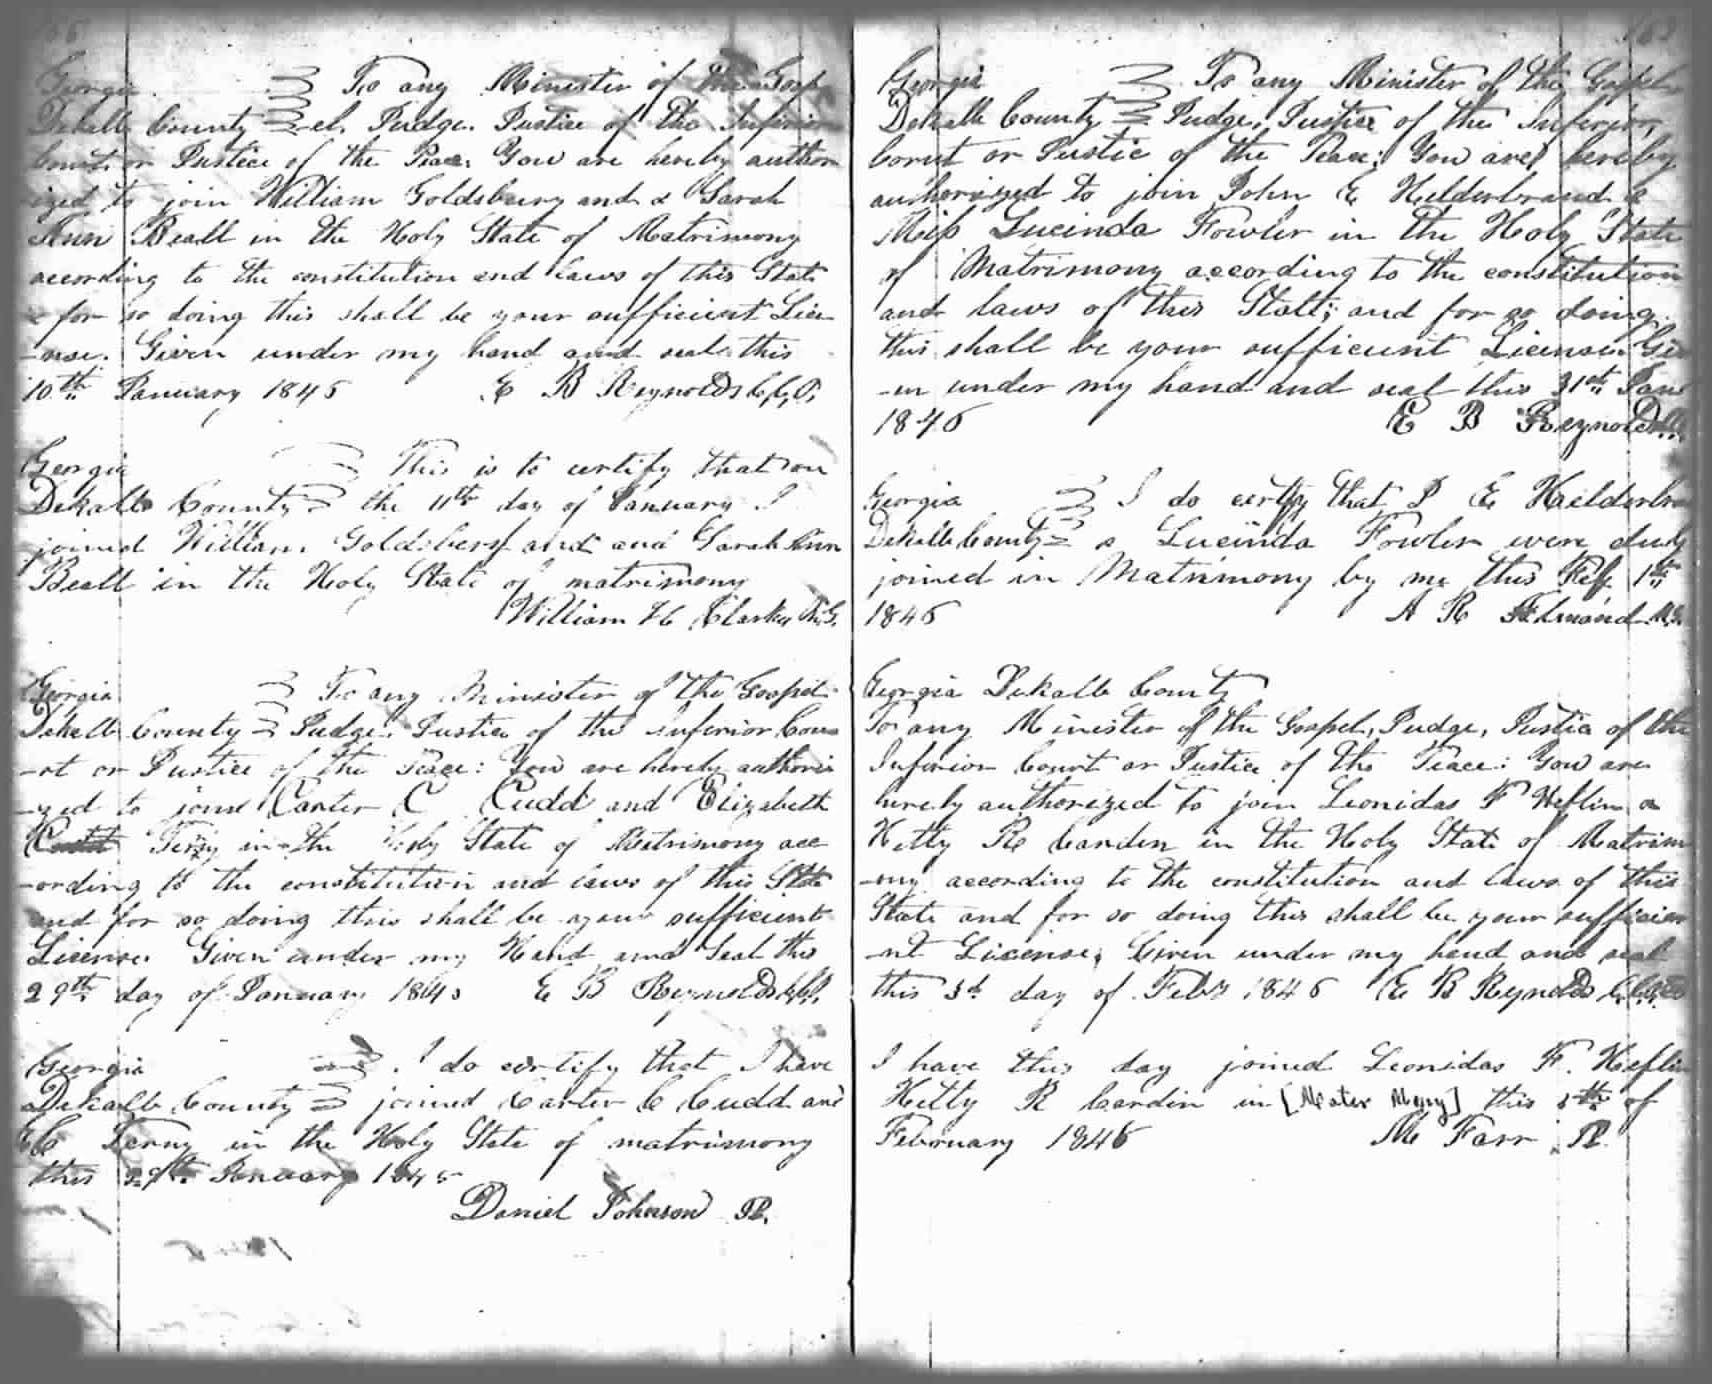 Georgia To any Minister of the Gosp
Dekalb County -el, Judge, Justice of the Inferior
Court or Justice of the Peace: You are hereby author
ized to join William Goldsberry and & Sarah
Ann Beall in the Holy State of Matrimony
according to the constitution and laws of this State
& for so doing this shall be your sufficient Lice
-nse. Given under my hand and seal this
10th January 1846 E B Reynolds C.C.O.
Georgia This is to certify that on
Dekalb County the 11th day of January I
joined William Goldsberry and and Sarah Ann
Beall in the Holy State of matrimony
William H Clarke M.G.
Georgia To any Minister of the Gospel
Dekalb County Judge, Justice of the Inferior Cou
-rt or Justice of the Peace: You are hereby authori
-zed to join Carter C Cudd and Elizabeth
Terry in the Holy State of Matrimony acc
-ording to the constitution and laws of this State
and for so doing this shall be your sufficient
License. Given under my Hand and Seal this
29th day of January 184 E B Reynolds
Georgia I do certify that I have
Dekalb County joined Carter C Cudd and
E C Terry in the Holy State of matrimony
this 29th January 184
Daniel Johnson JP.
163
Georgia To any Minister of the Gospel
Dekalb County Judge, Justice of the Inferior,
Corut or Justic of the Peace; You are hereby
authorized to join John E Hilderbrand &
Miss Lucinda Fowler in the Holy State
of Matrimony according to the constitution
and laws of this State; and for so doing
this shall be your sufficient License Giv
-en under my hand and seal this 31st Jan
1846 E B Reynolds
Georgia I do certfy that J E Haelderbra
Dekalb County & Lucinda Fowler were duly
joined in Matrimony by me this Feb 1st
1846 A R Almand M.G.
Georgia Dekalb County
To any Minister of the Gospel, Judge, Justice of the
Inferior Court or Justice of the Peace: You are
hereby authorized to join Leonidas F Heflin &
Hetty R Carden in the Holy State of Matrim
-ony according to the constitution and laws of this
State and for so doing this shall be your sufficien
-nt License; Given under my hand and seal
this 3d day of Feby 1846 E B Reynolds C.C.O.
I have this day joined Leonidas F. Heflin
Hetty R Cardin in [Mater Mony] this 5th of
February 1846 M Farr JP.